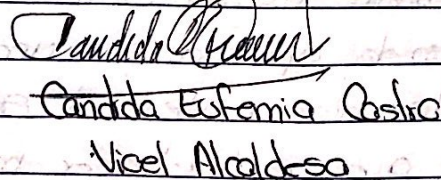 Candida
Candida Eufemia Castro
Vicel Alcaldesa